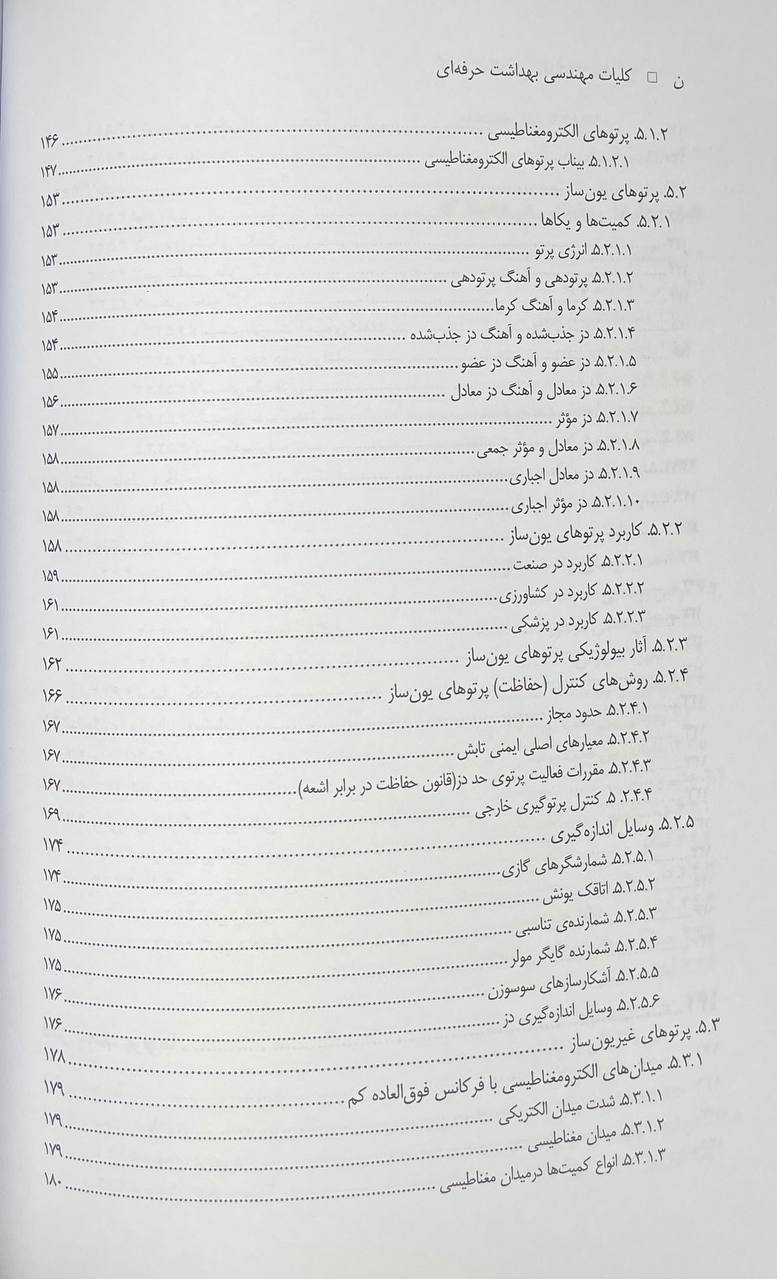 ن □ کلیات مهندسی بهداشت حرفه‌ای
۵.۱.۲. پرتوهای الکترومغناطیسی ۱۴۶
۵.۱.۲.۱. بیناب پرتوهای الکترومغناطیسی ۱۴۷
۵.۲. پرتوهای یون‌ساز ۱۵۳
۵.۲.۱. کمیت‌ها و یکاها ۱۵۳
۵.۲.۱.۱. انرژی پرتو ۱۵۳
۵.۲.۱.۲. پرتودهی و آهنگ پرتودهی ۱۵۳
۵.۲.۱.۳. کرما و آهنگ کرما ۱۵۴
۵.۲.۱.۴. دز جذب‌شده و آهنگ دز جذب‌شده ۱۵۴
۵.۲.۱.۵. دز عضو و آهنگ دز عضو ۱۵۵
۵.۲.۱.۶. دز معادل و آهنگ دز معادل ۱۵۶
۵.۲.۱.۷. دز مؤثر ۱۵۷
۵.۲.۱.۸. دز معادل و مؤثر جمعی ۱۵۸
۵.۲.۱.۹. دز معادل اجباری ۱۵۸
۵.۲.۱.۱۰. دز مؤثر اجباری ۱۵۸
۵.۲.۲. کاربرد پرتوهای یون‌ساز ۱۵۸
۵.۲.۲.۱. کاربرد در صنعت ۱۵۹
۵.۲.۲.۲. کاربرد در کشاورزی ۱۶۱
۵.۲.۲.۳. کاربرد در پزشکی ۱۶۱
۵.۲.۳. آثار بیولوژیکی پرتوهای یون‌ساز ۱۶۲
۵.۲.۴. روش‌های کنترل (حفاظت) پرتوهای یون‌ساز ۱۶۶
۵.۲.۴.۱. حدود مجاز ۱۶۷
۵.۲.۴.۲. معیارهای اصلی ایمنی تابش ۱۶۷
۵.۲.۴.۳. مقررات فعالیت پرتوی حد دز(قانون حفاظت در برابر اشعه) ۱۶۷
۵.۲.۴.۴. کنترل پرتوگیری خارجی ۱۶۹
۵.۲.۵. وسایل اندازه‌گیری ۱۷۴
۵.۲.۵.۱. شمارشگرهای گازی ۱۷۴
۵.۲.۵.۲. اتاقک یونش ۱۷۵
۵.۲.۵.۳. شمارنده‌ی تناسبی ۱۷۵
۵.۲.۵.۴. شمارنده گایگر مولر ۱۷۵
۵.۲.۵.۵. آشکارسازهای سوسوزن ۱۷۶
۵.۲.۵.۶. وسایل اندازه‌گیری دز ۱۷۶
۵.۳. پرتوهای غیریون‌ساز ۱۷۸
۵.۳.۱. میدان‌های الکترومغناطیسی با فرکانس فوق‌العاده کم ۱۷۹
۵.۳.۱.۱. شدت میدان الکتریکی ۱۷۹
۵.۳.۱.۲. میدان مغناطیسی ۱۷۹
۵.۳.۱.۳. انواع کمیت‌ها درمیدان مغناطیسی ۱۸۰